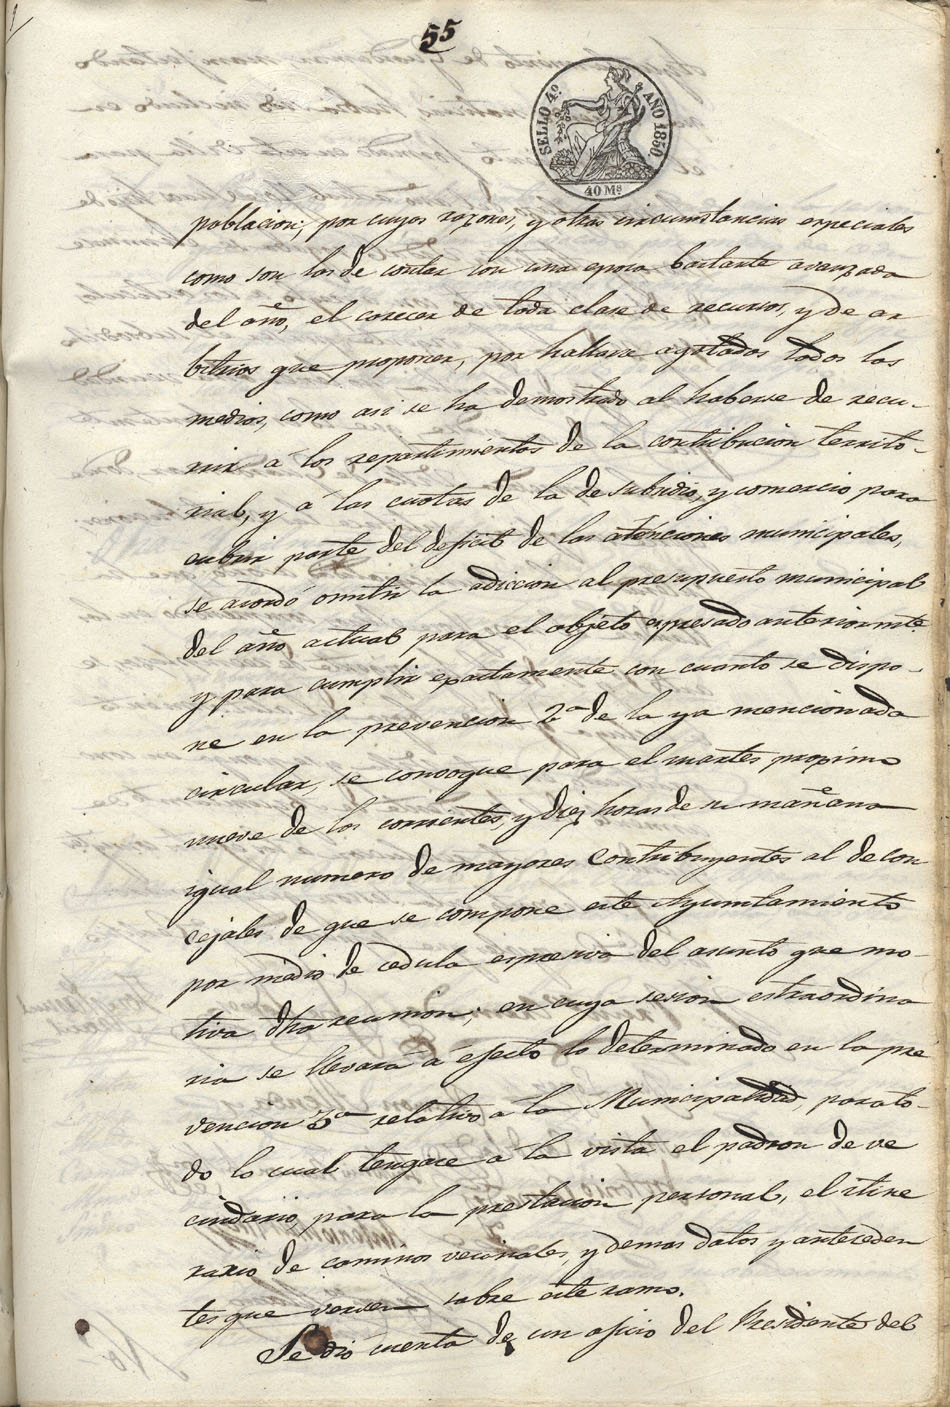 55
SELLO 4º
AÑO 1850.
40 Ms
poblacion; por cuyas razones, y otras circunstancias especiales
como son las de contar con una epoca bastante avanzada
del año, el carecer de toda clase de recursos, y de ar
bitrios que proponer, por hallarse agotados todos los
medios, como asi se ha demostrado al haberse de recu-
rrir á los repartimientos de la contribucion territo-
rial, y á las cuotas de la de subsidio, y comercio para
cubrir parte del deficit de las aténciones municipales,
se acordó omitir la adiccion al presupuesto municipal
del año actual para el objeto espresado anteriormte.
y para cumplir exactamente con cuanto se dispo-
ne en la prevencion 2ª de la ya mencionada
circular, se convoque para el martes proximo
nueve de los corrientes, y diez horas de su mañana
igual numero de mayores contribuyentes al de con
cejales de que se compone este Ayuntamiento
por medio de cedula espresiva del asunto que mo-
tiva dha reunion; en cuya sesion estraordina
ria se llevará á efecto lo determinado en la pre
vencion 3ª relativo á la Municipalidad, para to-
do lo cual tengase á la vista el padron de ve
cindario, para la prestacion personal, el itine
rario de caminos vecinales, y demas datos y anteceden
tes que versen sobre este ramo.
Se dió cuenta de un oficio del Presidente del